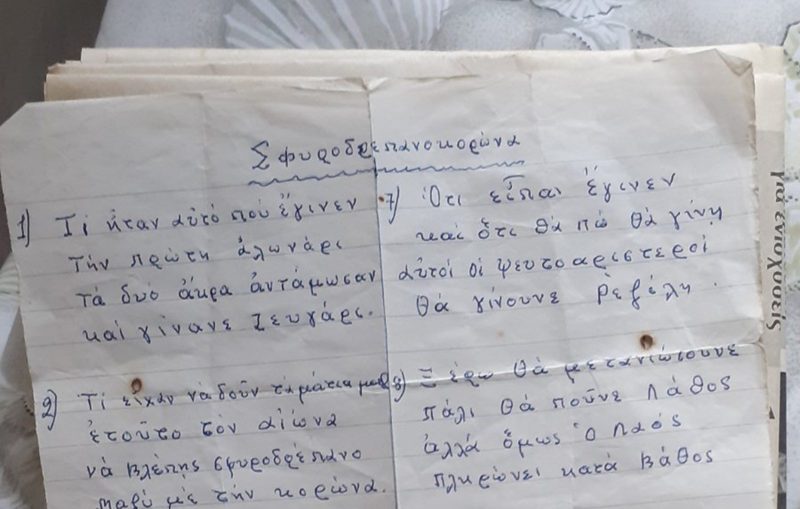 Σφυροδρεπανοκορώνα
1) Τί ἤταν αὐτό πού ἔγινεν
τήν πρώτη ἁλωνάρι
τά δυό ἄκρα ἀντάμωσαν
καί γίνανε ζευγάρι.
2) Τί εἶχαν νά δοῦν τά μάτια μας
ἐτοῦτο τόν αἰώνα
νά βλέπης σφυροδρέπανο
μαζύ μέ τήν κορώνα.
7) Ὅτι εἶπαι ἔγινεν
καί ὅτι θά πῶ θά γίνη
αὐτοί οἱ ψευτοαριστεροί
θά γίνουνε ρεζίλη.
8) Ξέρω θά μετανιώσουνε
πάλι θά ποῦνε λάθος
ἀλλά ὅμως ὁ λαός
πληρώνει κατά βάθος
γιά ἐνισχύσεις